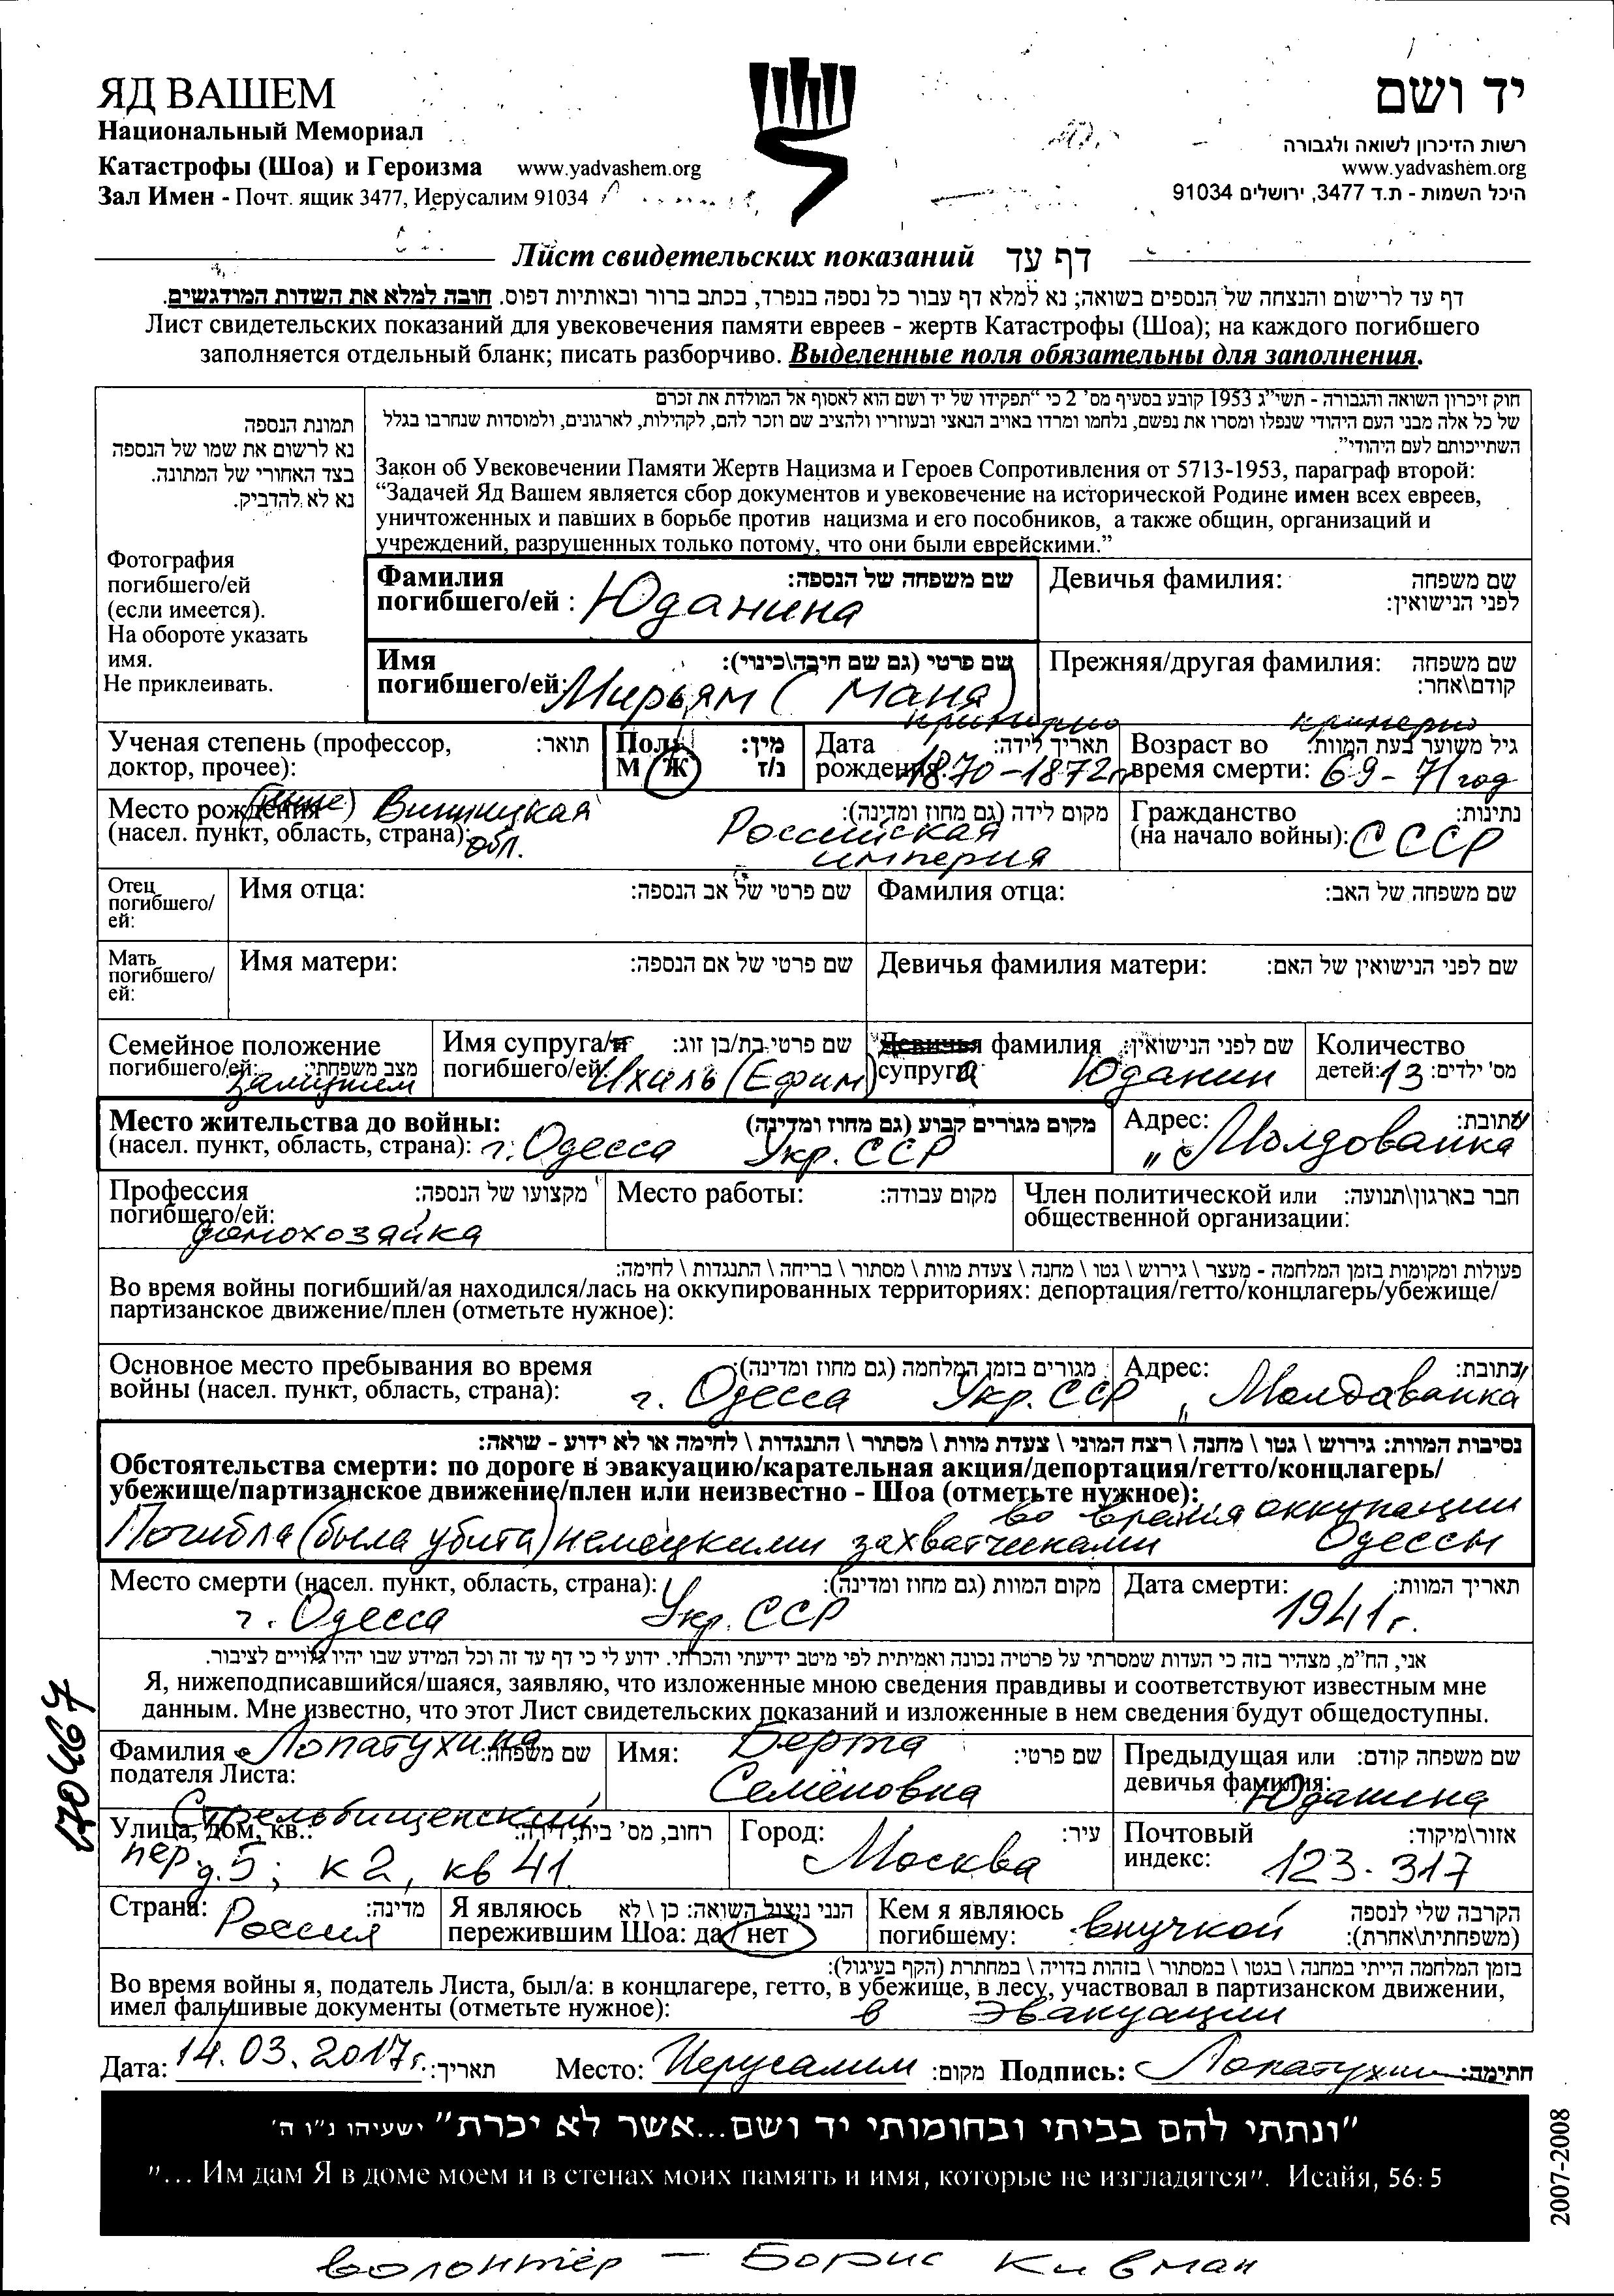 ЯД ВАШЕМ
Национальный Мемориал
Катастрофы (Шоа) и Героизма www.yadvashem.org
Зал Имен - Почт. ящик 3477, Иерусалим 91034
יד ושם
רשות הזיכרון לשואה ולגבורה
www.yadvashem.org
היכל השמות - ת.ד 3477, ירושלים 91034
Лист свидетельских показаний דף עד
דף עד לרישום והנצחה של הנספים בשואה; נא למלא דף עבור כל נספה בנפרד, בכתב ברור ובאותיות דפוס. חובה למלא את השדות המודגשים.
Лист свидетельских показаний для увековечения памяти евреев - жертв Катастрофы (Шоа); на каждого погибшего
заполняется отдельный бланк; писать разборчиво. Выделенные поля обязательны для заполнения.
תמונת הנספה
נא לרשום את שמו של הנספה
בצד האחורי של המתונה.
נא לא להדביק.
Фотография
погибшего/ей
(если имеется).
На обороте указать
имя.
Не приклеивать.
חוק זיכרון השואה והגבורה - תשי"ג 1953 קובע בסעיף מס' 2 כי "תפקידו של יד ושם הוא לאסוף אל המולדת את זכרם
של כל אלה מבני העם היהודי שנפלו ומסרו את נפשם, נלחמו ומרדו באויב הנאצי ובעוזריו ולהציב שם וזכר להם, לקהילות, לארגונים, ולמוסדות שנחרבו בגלל
השתייכותם לעם היהודי".
Закон об Увековечении Памяти Жертв Нацизма и Героев Сопротивления от 5713-1953, параграф второй:
“Задачей Яд Вашем является сбор документов и увековечение на исторической Родине имен всех евреев,
уничтоженных и павших в борьбе против нацизма и его пособников, а также общин, организаций и
учреждений, разрушенных только потому, что они были еврейскими.”
Фамилия שם משפחה של הנספה:
погибшего/ей : Юданина
Девичья фамилия: שם משפחה
לפני הנישואין:
Имя שם פרטי (גם שם חיבה\כינוי):
погибшего/ей: Мирьям (Маня)
Прежняя/другая фамилия: שם משפחה
קודם\אחר:
Ученая степень (профессор, תואר:
доктор, прочее):
Пол: מין:
М / Ж נ/ז
примерно
Дата תאריך לידה:
рождения: 1870-1872г
примерно
Возраст во גיל משוער בעת המוות:
время смерти: 69-71 год
Место рождения (ныне) Винницкая מקום לידה (גם מחוז ומדינה):
(насел. пункт, область, страна): обл. Российская
империя
Гражданство נתינות:
(на начало войны): СССР
Отец
погибшего/
ей:
Имя отца: שם פרטי של אב הנספה:
Фамилия отца: שם משפחה של האב:
Мать
погибшего/
ей:
Имя матери: שם פרטי של אם הנספה:
Девичья фамилия матери: שם לפני הנישואין של האם:
Семейное положение
погибшего/ей: מצב משפחתי:
замужем
Имя супруга/и שם פרטי בת/בן זוג:
погибшего/ей: Ихиль (Ефим)
Девичья фамилия שם לפני הנישואין:
супруга Юданин
Количество
детей: 13 מס' ילדים:
Место жительства до войны: מקום מגורים קבוע (גם מחוז ומדינה)
(насел. пункт, область, страна): г. Одесса Укр. ССР
Адрес: כתובת:
"Молдованка"
Профессия מקצועו של הנספה:
погибшего/ей:
домохозяйка
Место работы: מקום עבודה:
Член политической или חבר בארגון\תנועה:
общественной организации:
פעולות ומקומות בזמן המלחמה - מעצר \ גירוש \ גטו \ מחנה \ צעדת מוות \ מסתור \ בריחה \ התנגדות \ לחימה:
Во время войны погибший/ая находился/лась на оккупированных территориях: депортация/гетто/концлагерь/убежище/
партизанское движение/плен (отметьте нужное):
Основное место пребывания во время מגורים בזמן המלחמה (גם מחוז ומדינה):
войны (насел. пункт, область, страна): г. Одесса Укр. ССР
Адрес: כתובת:
"Молдаванка"
נסיבות המוות: גירוש \ גטו \ מחנה \ רצח המוני \ צעדת מוות \ מסתור \ התנגדות \ לחימה או לא ידוע - שואה:
Обстоятельства смерти: по дороге в эвакуацию/карательная акция/депортация/гетто/концлагерь/
убежище/партизанское движение/плен или неизвестно - Шоа (отметьте нужное):
во время оккупации
Погибла (была убита) немецкими захватчиками Одессы
Место смерти (насел. пункт, область, страна): מקום המוות (גם מחוז ומדינה):
г. Одесса Укр. ССР
Дата смерти: תאריך המוות:
1941г.
אני, הח"מ, מצהיר בזה כי העדות שמסרתי על פרטיה נכונה ואמיתית לפי מיטב ידיעתי והכרתי. ידוע לי כי דף עד זה וכל המידע שבו יהיו גלויים לציבור.
Я, нижеподписавшийся/шаяся, заявляю, что изложенные мною сведения правдивы и соответствуют известным мне
данным. Мне известно, что этот Лист свидетельских показаний и изложенные в нем сведения будут общедоступны.
Фамилия Лопатухина שם משפחה:
подателя Листа:
Имя: Берта שם פרטי:
Семёновна
Предыдущая или שם משפחה קודם:
девичья фамилия: Юданина
Стрельбищенский
Улица, дом, кв.: רחוב, מס' בית, דירה:
пер д.5; к 2, кв 41
Город: עיר:
Москва
Почтовый אזור\מיקוד:
индекс: 123-317
Страна: מדינה:
Россия
Я являюсь הנני ניצול השואה: כן \ לא
пережившим Шоа: да / нет
Кем я являюсь הקרבה שלי לנספה
погибшему: внучкой (משפחתית\אחרת):
בזמן המלחמה הייתי במחנה \ בגטו \ במסתור \ בזהות בדויה \ במחתרת (הקף בעיגול):
Во время войны я, податель Листа, был/а: в концлагере, гетто, в убежище, в лесу, участвовал в партизанском движении,
имел фальшивые документы (отметьте нужное): в эвакуации
Дата: 14.03.2017г. תאריך: Место: Иерусалим מקום: Подпись: Лопатухин חתימה:
"ונתתי להם בביתי ובחומותי יד ושם...אשר לא יכרת" ישעיהו נ"ו ה'
"... Им дам Я в доме моем и в стенах моих память и имя, которые не изгладятся". Исайя, 56:5
2007-2008
170467
волонтёр - Борис Кивман